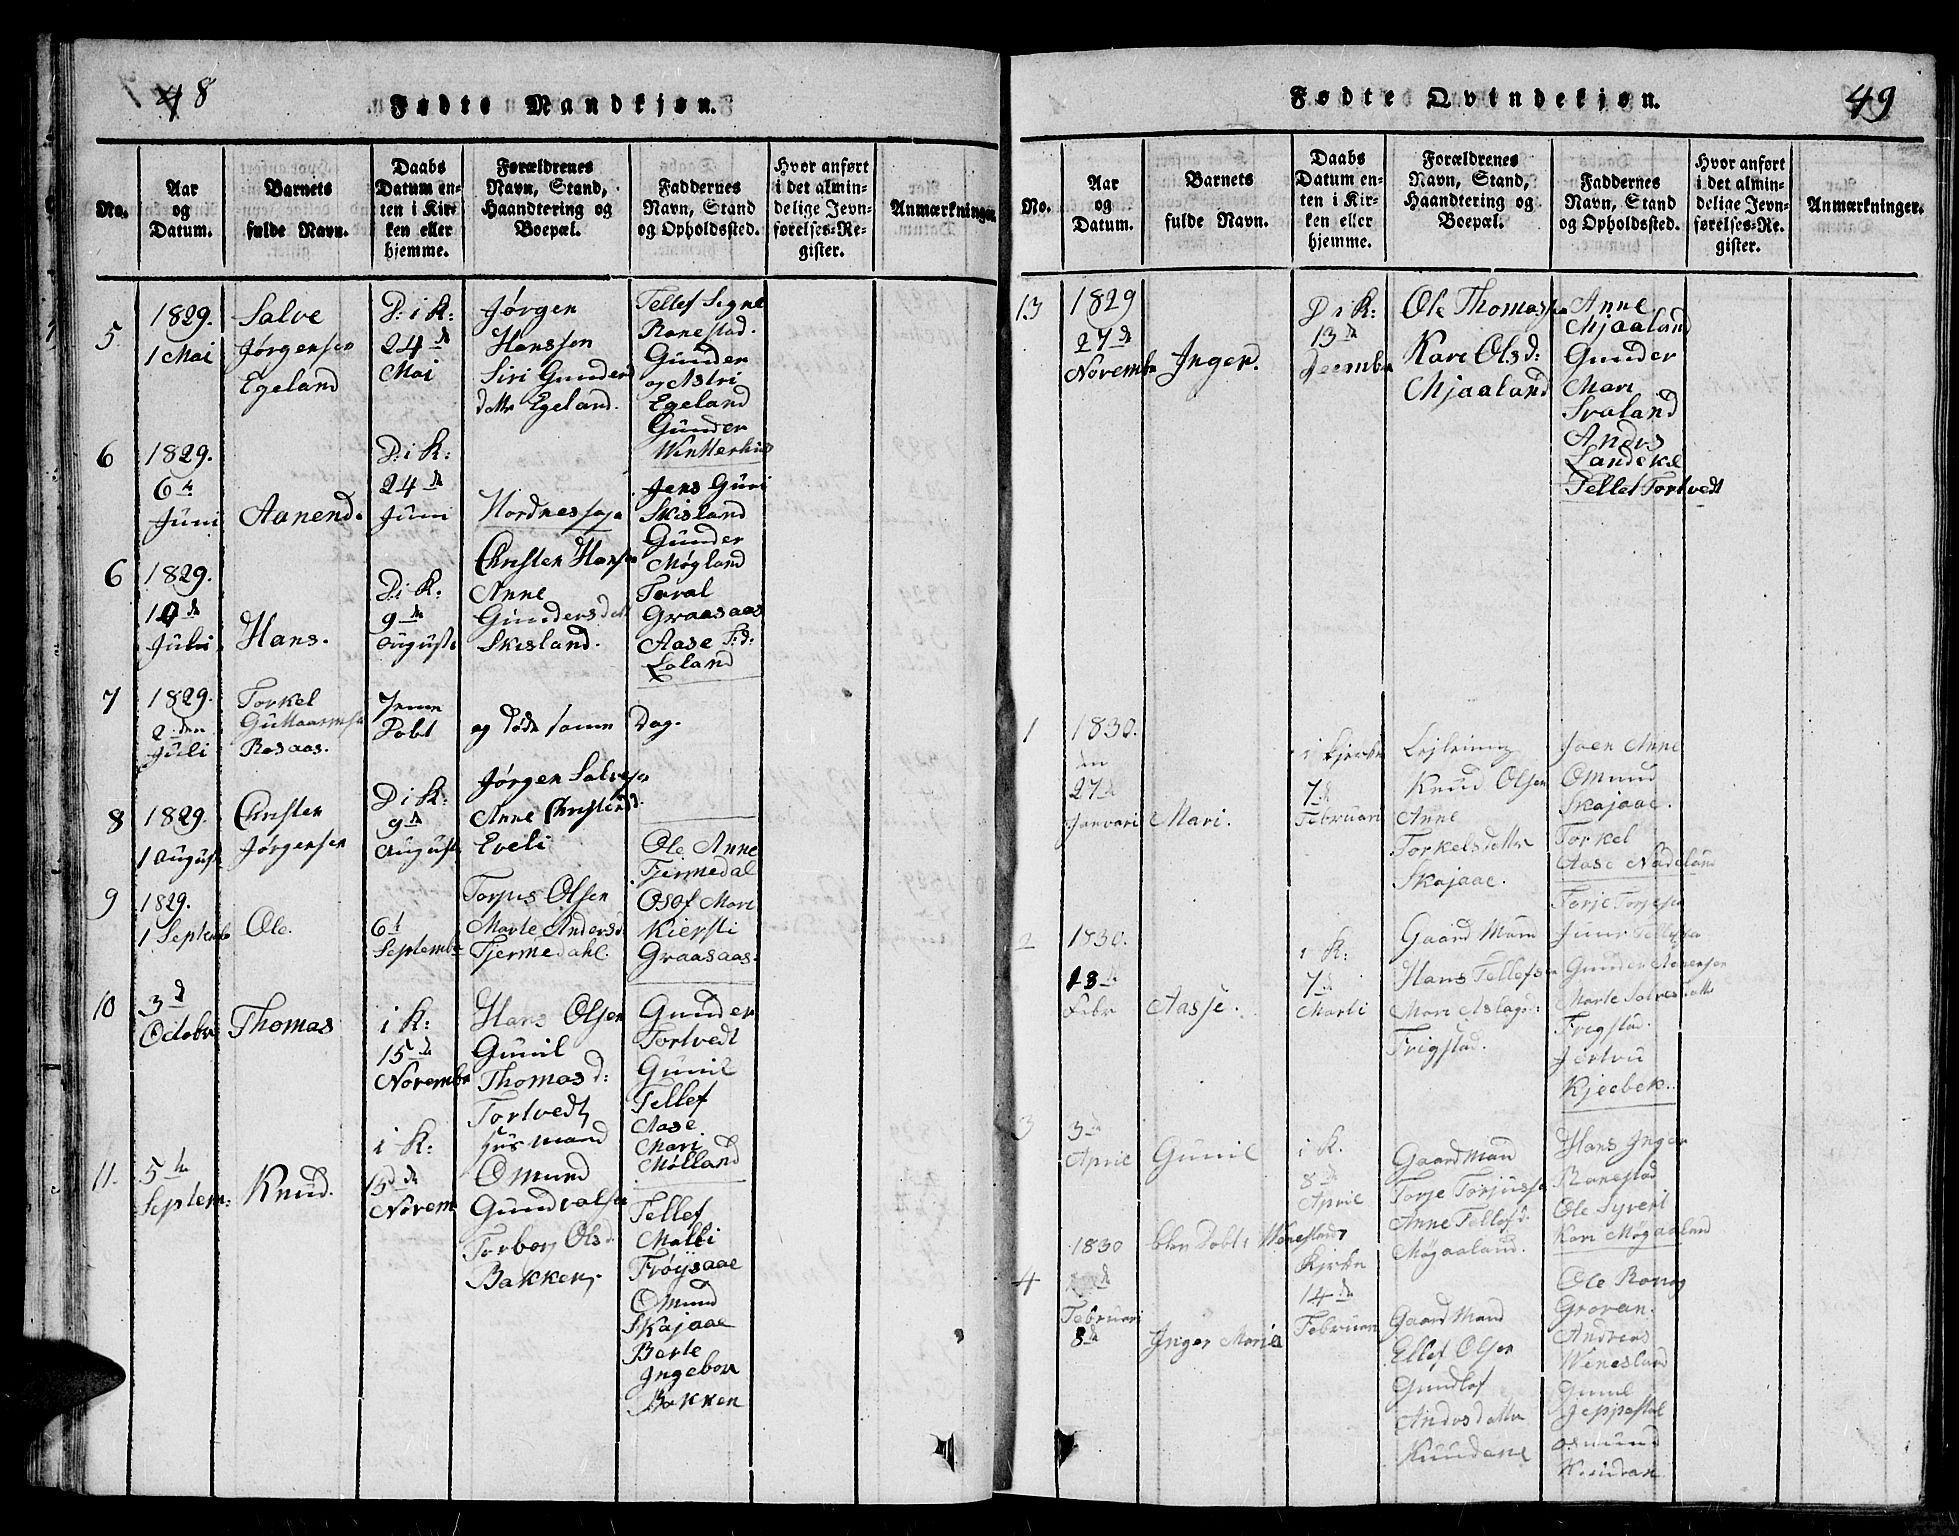 48
Fødte Mandkjøn.
No.
Aar
og
Datum.
Barnets
fulde Navn.
Daabs
Datum en-
ten i Kir-
ken eller
hjemme.
Forældrenes
Navn, Stand,
Haandtering og
Boepæl.
Faddernes
Navn, Stand
og Opholdssted.
Hvor anført
i det almin-
delige Jevn-
førelses-Re-
gister.
Anmærkninger.
5
1829.
1 Mai
Salve
Jørgensen
Egeland
D: i K:
24de
Mai
Jørgen
Hanssen
Siri Gunders
datter Egeland.
Tellef Signe
Ranestad.
Gunder
og Astri
Egeland
Gunder
Winterhus
6
1829.
6te
Juni
Aanend.
D: i K:
24de
Juni
Jens Guri
Skisland
Gunder
Møgland
6
1829.
Juli
Hans.
D: i K:
9de
August
Christen Hansen
Anne
Gundersdatt
Skisland.
Toral
Graasaas
Aase T:d:
Loland
7
1829.
2den
Juli
Torkel
Rosaas.
Dobt
og døde samme Dag.
8
1829.
1 August
Christen
Jørgensen
D: i K:
9de
August
Jørgen Salvesen
Anne Christensd.
Eveli
Ole Anne
Fjermedal
9
1829.
1 Septembr
Ole.
6te
Septembr
Torjus Olsen
Marte Andersd.
Fjermedahl.
Osof Mari
Kiersti
Graasaas.
10
3d
Octobr
Thomas
i K:
15de
Novembr
Hans Olsen
Gunil
Thomasd:
Tortvedt
Gunder
Tortvedt
Gunil
Tellef
Aase
Mari
Mølland
11.
5te
Septem:
Knud.
i K:
15de
Novem
Husmand
Omund
Gundvalsen
Torbor Olsd.
Bakken.
Tellef
Malli
Frøysaae
Omund
Skajaae
Berte
Ingebor
Bakken
49
Fødte Qvindekjøn.
No.
Aar
og
Datum.
Barnets
fulde Navn.
Daabs
Datum en-
ten i Kir-
ken eller
hjemme.
Forældrenes
Navn, Stand,
Haandtering og
Boepæl.
Faddernes
Navn, Stand
og Opholdssted.
Hvor anført
i det almin-
delige Jevn-
førelses-Re-
gister.
Anmærkninger.
13
1829
27de
Novembr
Inger.
D i K:
13de
Decembr
Ole Thomassen
Kari Olsd:
Mjaaland
Anne
Mjaaland
Gunder
Mari
Sraland
Anders
Landekel
Tellef Tortvedt
1
1830.
27de
Januari
Mari.
i Kjerken
7de
Februari
Knud Olsen
Anne
Torkelsdatter
Skajaae.
Joen Anne
Omund
Skajaae.
Torkel
Aase Nadeland
2
1830.
13de
Febr
Aasje.
i K:
7de
Marti
Gaard Mand
Hans Tellefsen
Mari Aslags:
Frigstad.
Torje Torjesen
Gunder Aanensen
Marte Salvesdatter
Frigstad.
Kjeebek.
3
3de
April
Gunil
i K.
8de
April
Gaard Mand
Torje Torjussen
Anne Tellefsd.
Møgaaland.
Hans Inger
Ranestad
Ole Syveri
Kari Møgaaland
4
1830
Februari
8de
blev Dobt i Weneslad
Inger Maria
Kjrken
14de
Februari
Gaard Mand
Ellef Olsen
Gundlof
Andersdatter
Ole Ronog
Grovan.
Andreas
Wenesland
Gunil
Jeppestøl
Osmund